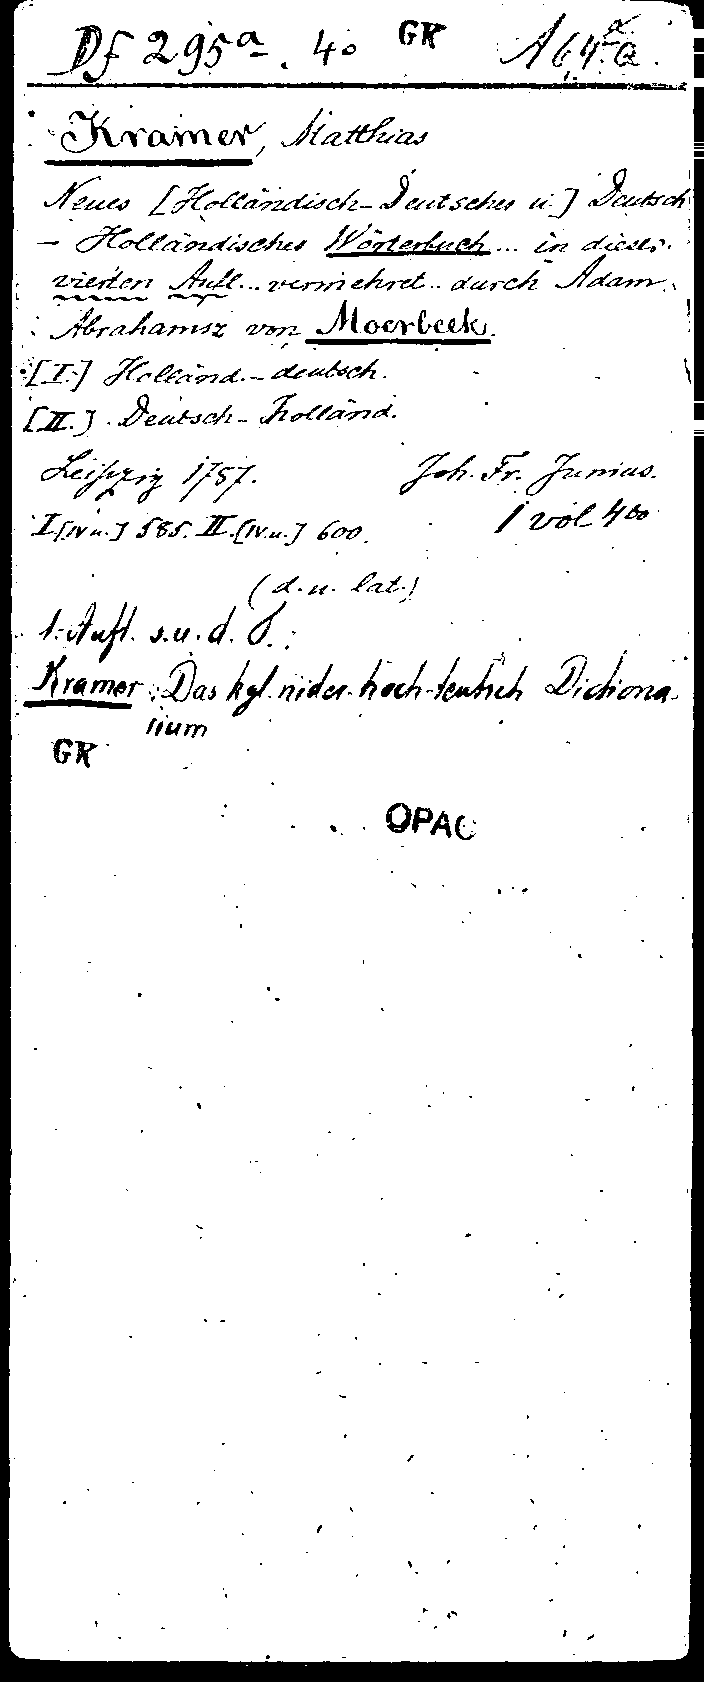 Df 295a. 4o GK A 64 a.
Kramer, Matthias
Neues [Holländisch-Deutsches u.] Deutsch
- Holländisches Wörterbuch... in dieser
vierten Aufl... vermehret.. durch Adam
Abrahamsz von Moerbeek.
[I.] Holländ.-deutsch.
[II.] Deutsch-holländ.
Leipzig 1787. Joh. Fr. Junius.
I [IV u.] 585. II [IV u.] 600. 1 vol 4to
(d. u. lat.)
1. Aufl. s. u. d. T.:
Kramer: Das kgl. nider-hoch-teutsch Dictiona-
rium
GK
OPAC